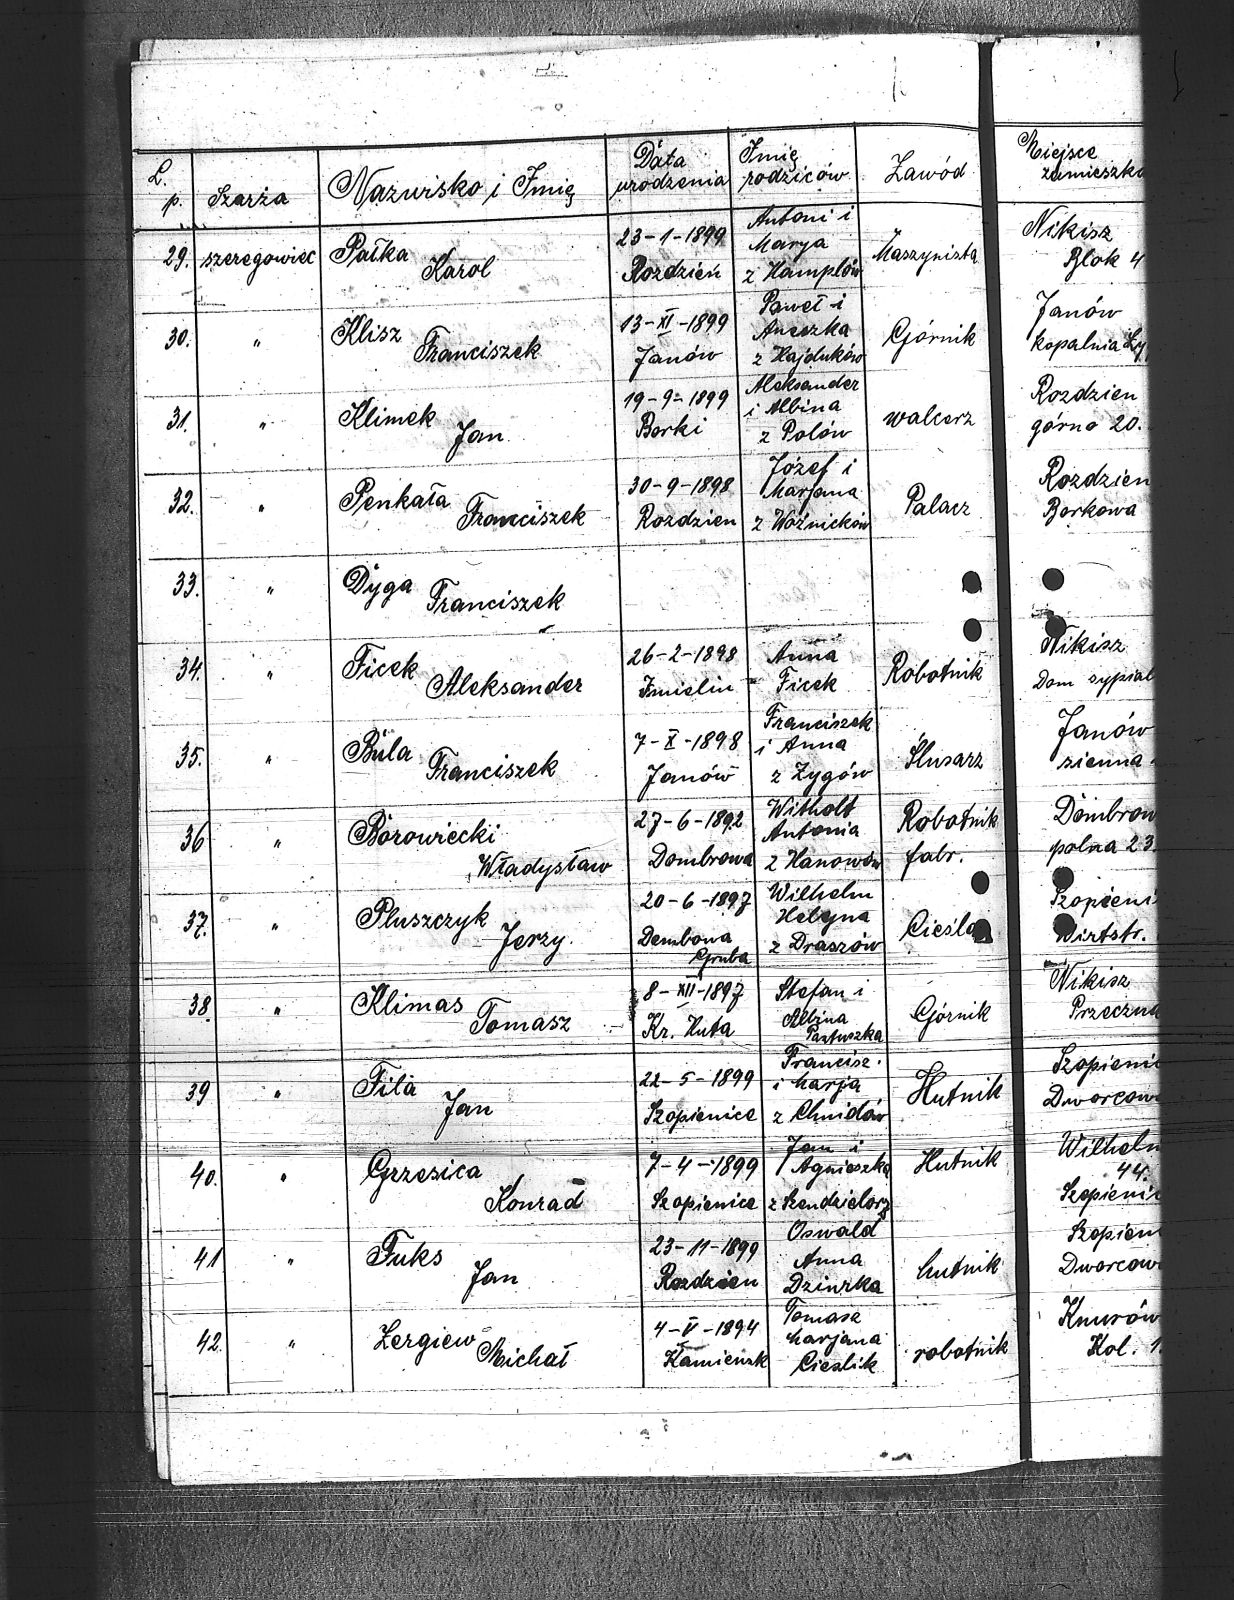 L. p. Szarża Nazwisko i Imię Data urodzenia Imię rodziców Zawód Miejsce zamieszka
29. szeregowiec Pałka Karol 23-1-1899 Rozdzień Antoni i Marya z Hamplów Maszynista Nikisz Blok 4
30. " Klisz Franciszek 13-XI-1899 Janów Paweł i Aneczka z Hajduków Górnik Janów kopalnia
31. " Klimek Jan 19-9-1899 Borki Aleksander i Albina z Polów walcerz Rozdzien górna 20.
32. " Penkała Franciszek 30-9-1898 Rozdzien Józef i Marjana z Woźnicków Palacz Rozdzien Borkowa
33. " Dyga Franciszek
34. " Ficek Aleksander 26-2-1898 Imielin Anna Ficek Robotnik Nikisz Dom sypial
35. " Bula Franciszek 7-X-1898 Janów Franciszek i Anna z Zygów Ślusarz Janów sienna
36 " Borowiecki Władysław 27-6-1892 Dombrowa Witholt Antonia z Hanowów Robotnik fabr. Dombrow polna 23.
37. " Pluszczyk Jerzy 20-6-1897 Dembowa Gruba Wilhelm Helejna z Draszów Cieśla Szopieni Wirtstr.
38. " Klimas Tomasz 8-XII-1897 Kr. Huta Stefan i Albina Pastuszka Górnik Nikisz Przeczna
39 " Fila Jan 22-5-1899 Szopienice Francisz. i Marja z Chnidów Hutnik Szopieni Dworcow
40. " Grzesica Konrad 7-4-1899 Szopienice Jan i Agnieszka z Szendzielorz Hutnik Wilhelm 44. Szopieni
41 " Fuks Jan 23-11-1899 Rozdzien Oswald Anna Dziurka hutnik Szopieni Dworcow
42. " Zergiew Michał 4-V-1894 Kamiensk Tomasz Marjana Cieslik robotnik Knurów Kol. 1